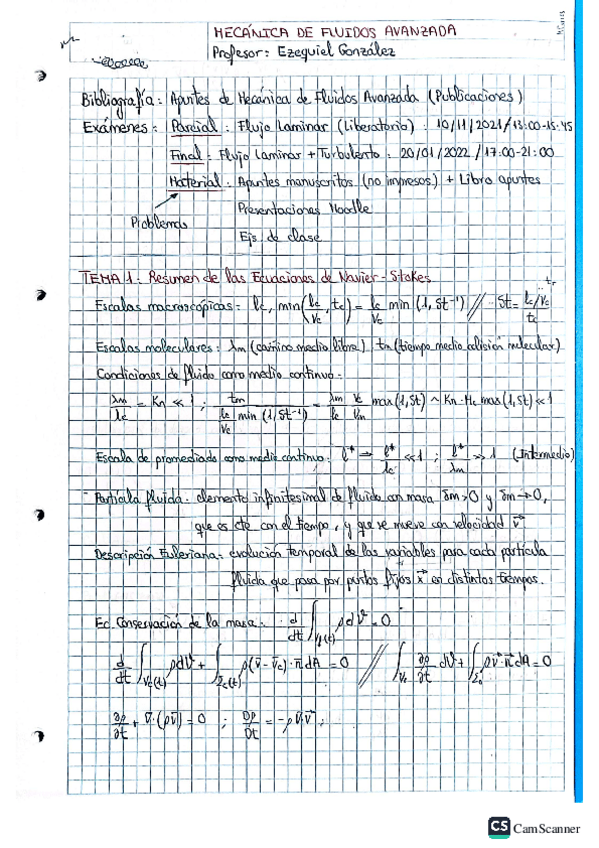 MECÁNICA DE FLUIDOS AVANZADA
Profesor: Ezequiel González
Bibliografía: Apuntes de Mecánica de Fluidos Avanzada (Publicaciones)
Exámenes: Parcial: Flujo Laminar (Liberatorio): 10/11/2021/13:00-15:45
Final: Flujo Laminar + Turbulento: 20/01/2022/17:00-21:00
Material: Apuntes manuscritos (no impresos) + Libro apuntes
Presentaciones Moodle
Problemas
Ejs. de clase
TEMA 1: Resumen de las Ecuaciones de Navier-Stokes
Escalas macroscópicas: lc, min(lc/vc, tc) = lc/vc min(1, St⁻¹) // St = (lc/vc)/tc
Escalas moleculares: λm (camino medio libre), tm (tiempo medio colisión molecular)
Condiciones de fluido como medio continuo:
λm/lc = Kn ≪ 1 ; tm/(lc/vc min(1, St⁻¹)) = λm/lc vc/vm max(1, St) ~ Kn·Mc max(1, St) ≪ 1
Escala de promediado como medio continuo: l* → l*/lc ≪ 1 ; l*/λm ≫ 1 (Intermedio)
Partícula fluida: elemento infinitesimal de fluido con masa δm>0 y δm→0,
que es cte con el tiempo, y que se mueve con velocidad v⃗.
Descripción Euleriana: evolución temporal de las variables para cada partícula
fluida que pasa por puntos fijos x⃗ en distintos tiempos.
Ec. Conservación de la masa: d/dt ∫Vf(t) ρdV = 0
d/dt ∫Vc(t) ρdV + ∫Σc(t) ρ(v̄ - v̄c)·n̄ dA = 0 // ∫V0 ∂ρ/∂t dV + ∫Σ0 ρv̄·n̄ dA = 0
∂ρ/∂t + ∇̄·(ρv̄) = 0 ; Dρ/Dt = -ρ∇̄·v̄ ;
CS CamScanner